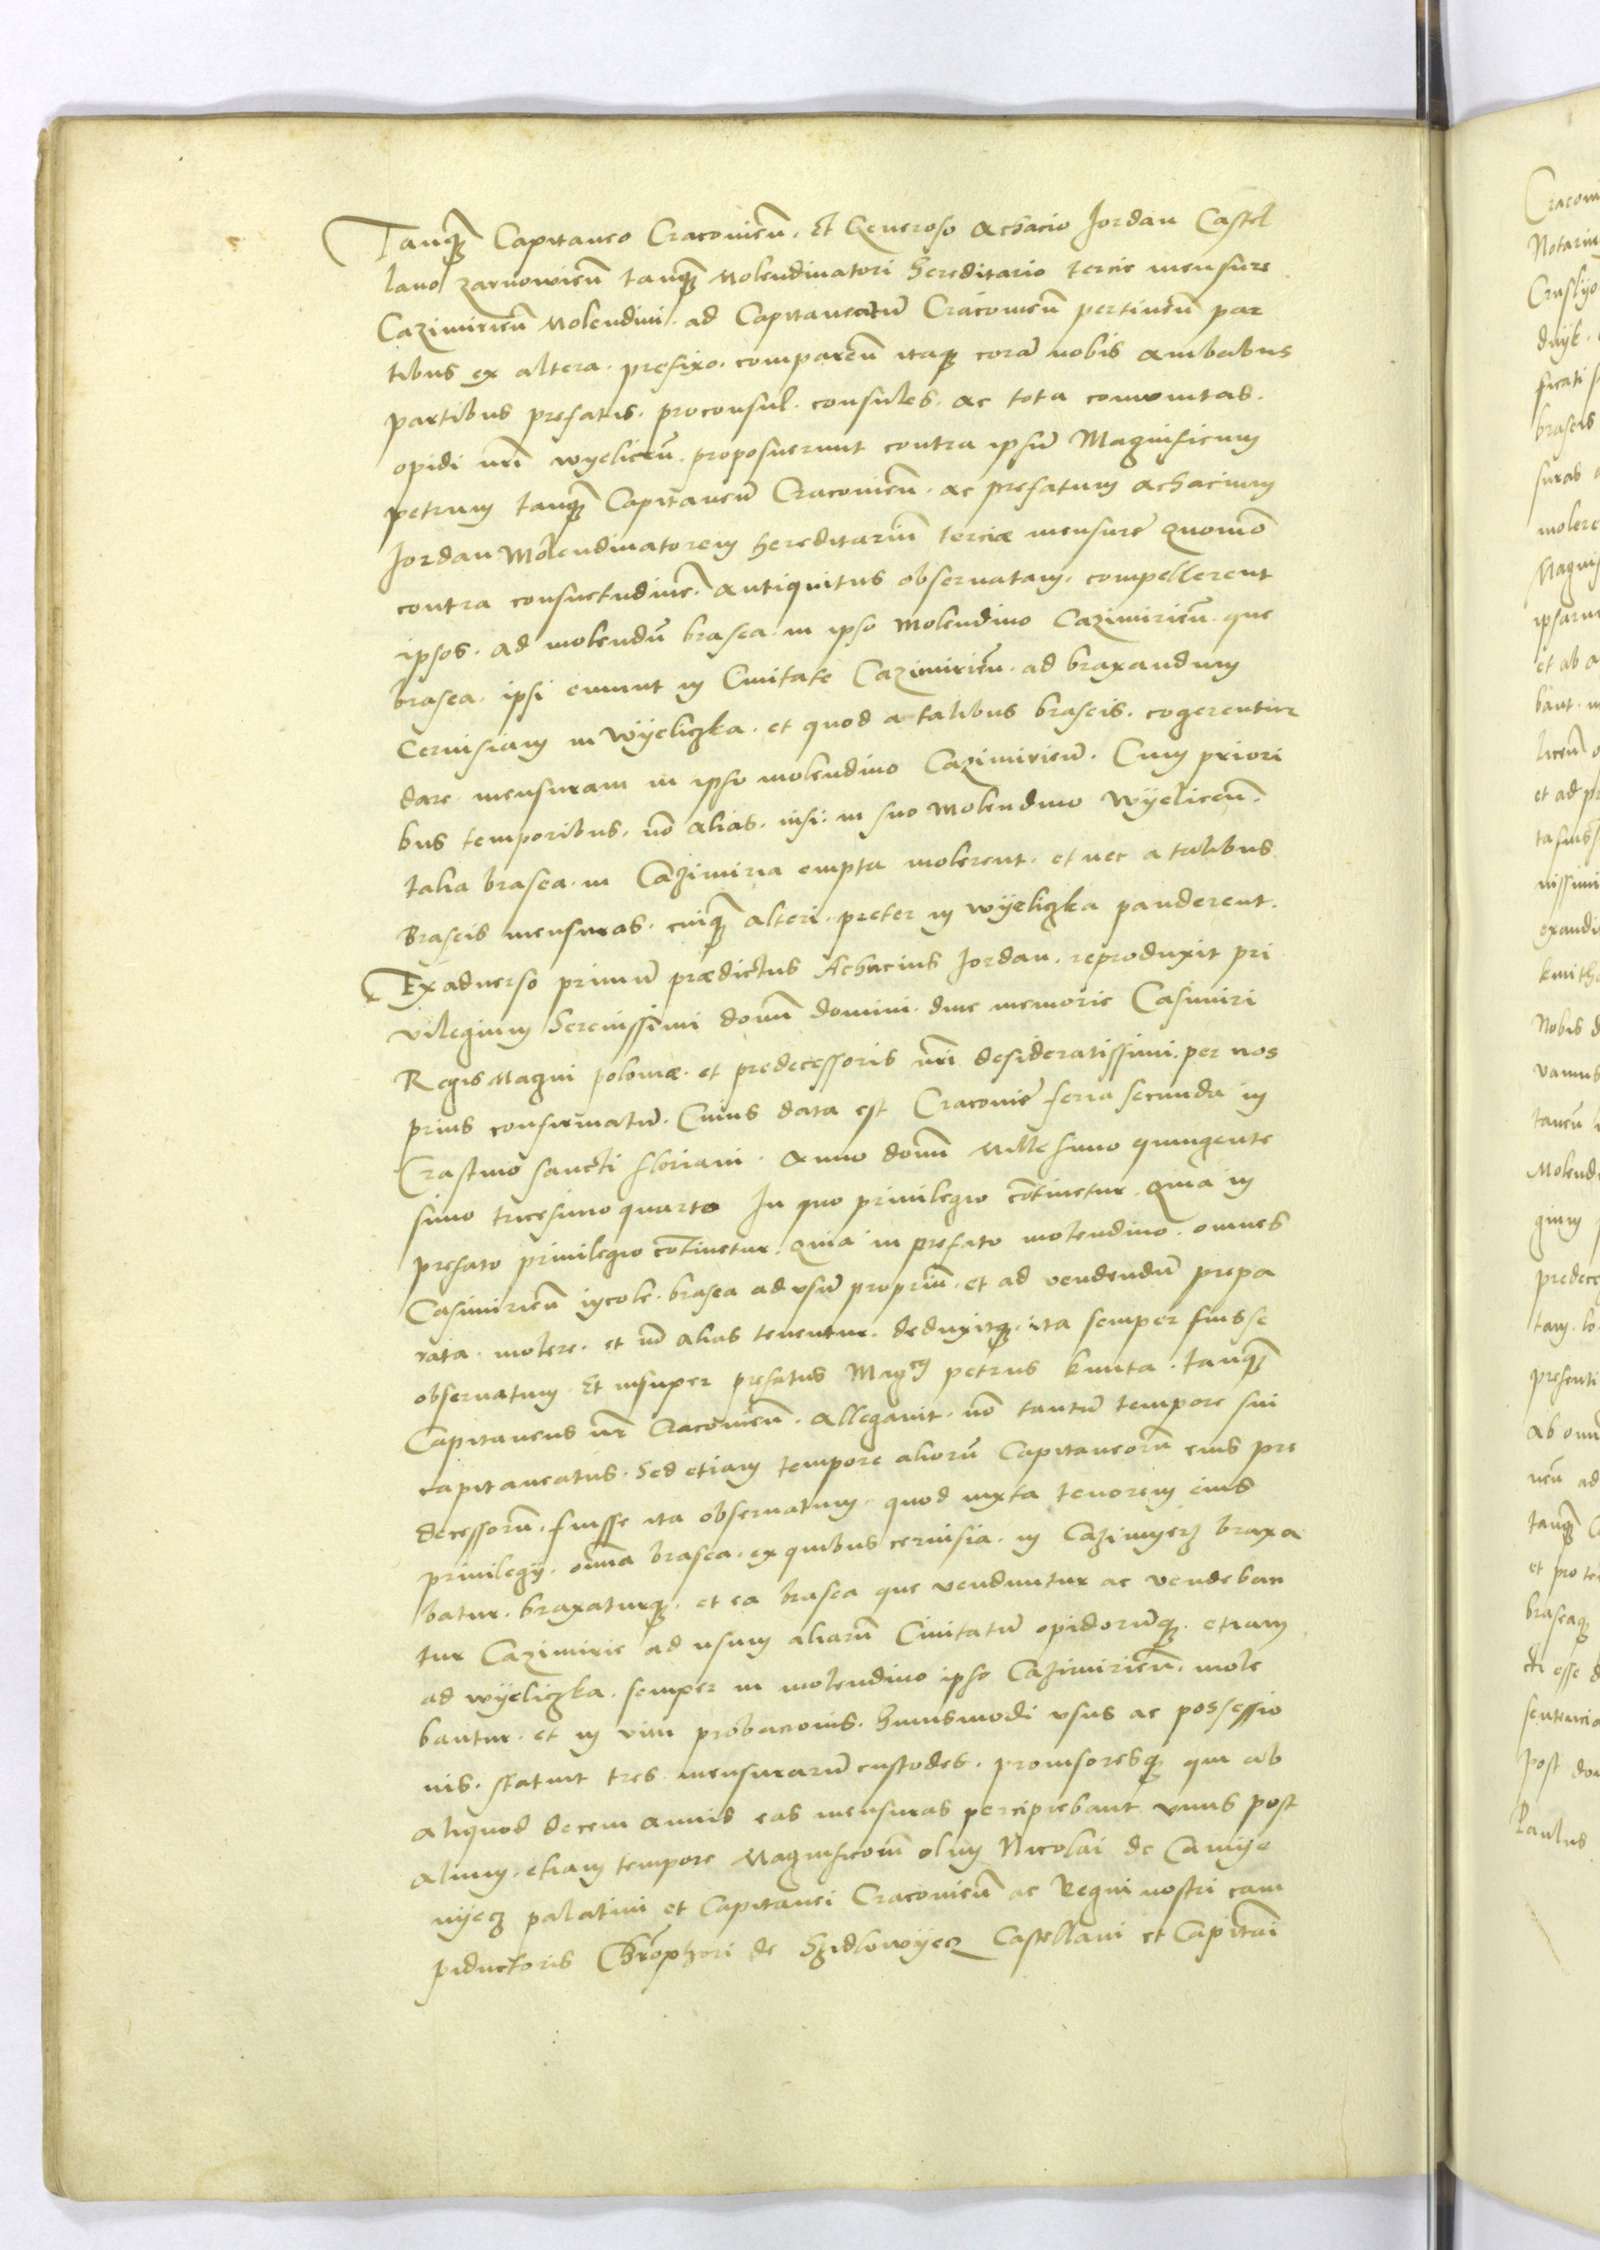 Tanq̃ Capitaneo Cracovieñ. Et Generoso Achacio Jordan Castel
lano zarnowieñ tanq̃ Molendinatori hereditario tercie mensure
Cazimirieñ Molendini. ad Capitaneatũ Cracovieñ pertineñ par
tibus ex altera. prefixo. compareñ itaq̃ corã nobis ambabus
partibus prefatis. proconsul. consules. ac tota com̃unitas.
opidi nr̃i wyelicẽn. proposuerunt contra ipsũ Magnificum
petrum tanq̃ Capitaneũ Cracovieñ. ac prefatum achacium
Jordan Molendinatorem hereditariũ terciæ mensure quomõ
contra consuetudinẽ. antiquitus observatam. compellerent
ipsos. ad molendũ brasea. in ipso Molendino Cazimirieñ. que
brasea. ipsi emunt in Civitate Cazimirieñ. ad braxandum
Cervisiam in Wyeliczka. et quod a talibus braseis. cogerentur
dare mensuram in ipso molendino Cazimirieñ. Cum priori
bus temporibus. nõ alias. nisi. in suo Molendino Wyeliceñ.
talia brasea. in Cazimiria empta molerent. et nec a talibus
Braseis mensuras. cuiq̃ alteri. preter in wyeliczka panderent.
Ex adverso primũ prædictus Achacius Jordan. reproduxit pri
vilegium Serenissimi dom̃ domini. dive memorie Casimiri
Regis Magni poloniæ. et predecessoris nr̃i desideratissimi. per nos
prius confirmatũ. Cuius data est Cracovie feria secunda in
Crastino sancti floriani. Anno domĩ Millesimo quingente
simo tricesimo quarto In quo privilegio cõtinetur. quia in
prefato privilegio cõtinetur. quia in prefato molendino. omnes
Casimirieñ incole. brasea ad usũ propriũ. et ad vendendũ prepa
rata. molere. et nõ alias tenentur. deduxitq̃. ita semper fuisse
observatum. Et insuper prefatus Mag^cus petrus kmita. tanq̃
Capitaneus nr̃ Cracovieñ. Allegavit. nõ tantũ tempore sui
capitaneatus. Sed etiam tempore aliorũ Capitaneorũ eius pre
decessorũ. fuisse ita observatum. quod iuxta tenorem eius
privilegij. om̃ia brasea. ex quibus cervisia. in Cazimyerz braxa
batur. braxaturq̃. et ea brasea que venduntur ac vendeban
tur Cazimirie ad usum aliarũ Civitatũ opidorũq̃. etiam
ad wyeliczka. semper in molendino ipso Cazimirieñ. mole
bantur. et in vim probacionis. huiusmodi usus ac possessio
nis. statuit tres mensurarũ custodes. provisoresq̃ qui ab
aliquod decem annis eas mensuras percipiebant unus post
alium. etiam tempore Magnificorũ olim Nicolai de Camye
nyecz palatini et Capitanei Cracovieñ ac Regni nostri cam
piductoris Chr̃ophori de Szidlowyecz Castellani et Capitãi